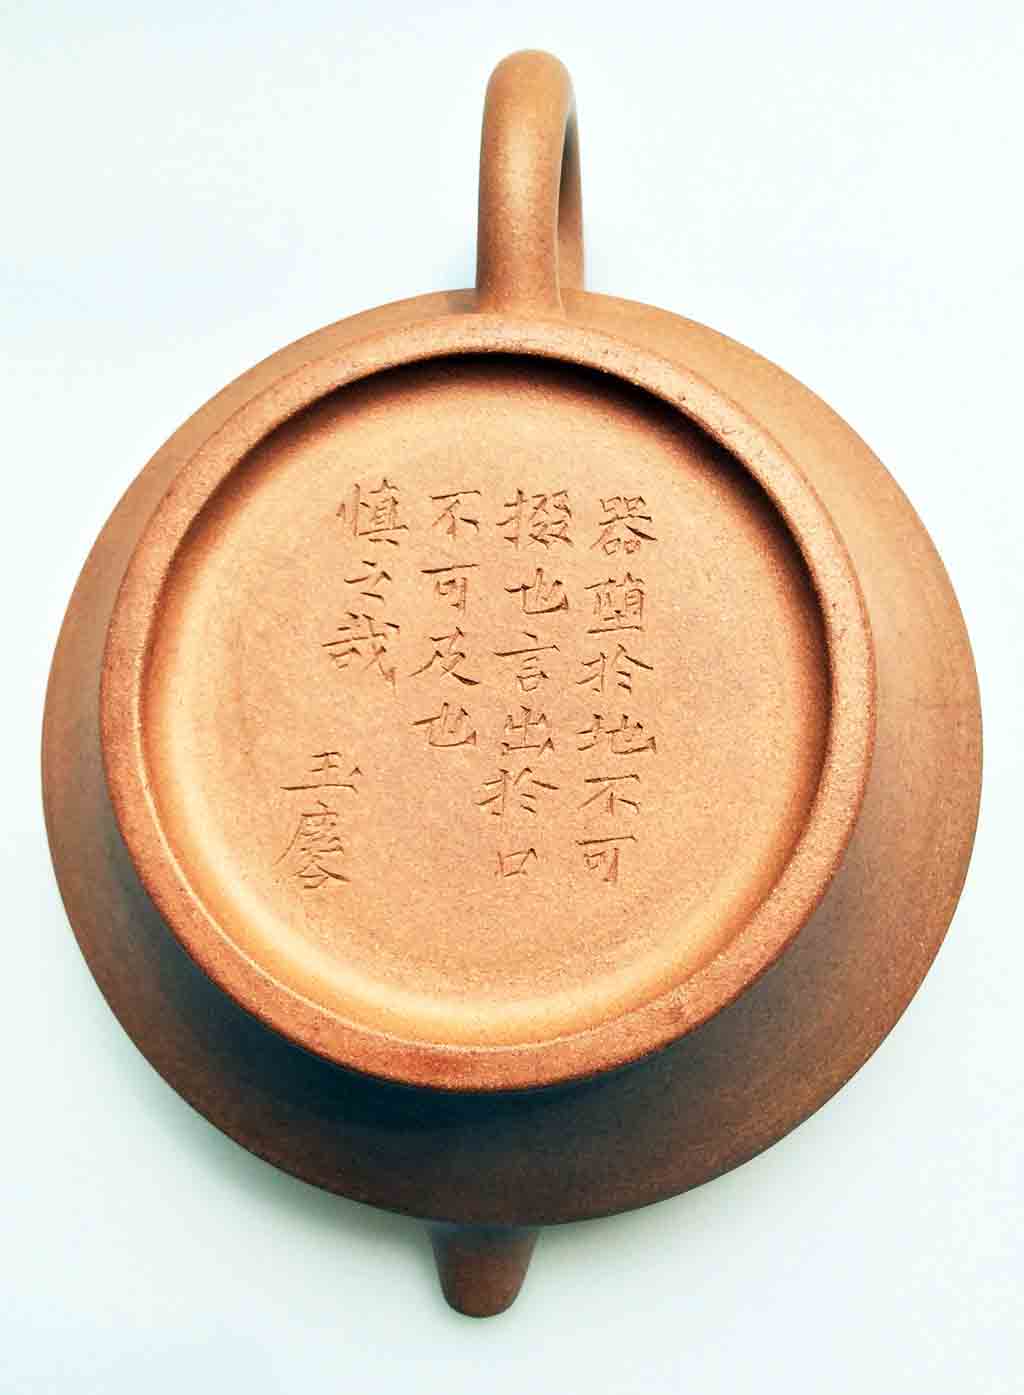 器墮於地不可
掇也言出於口
不可及也
慎之哉
玉慶